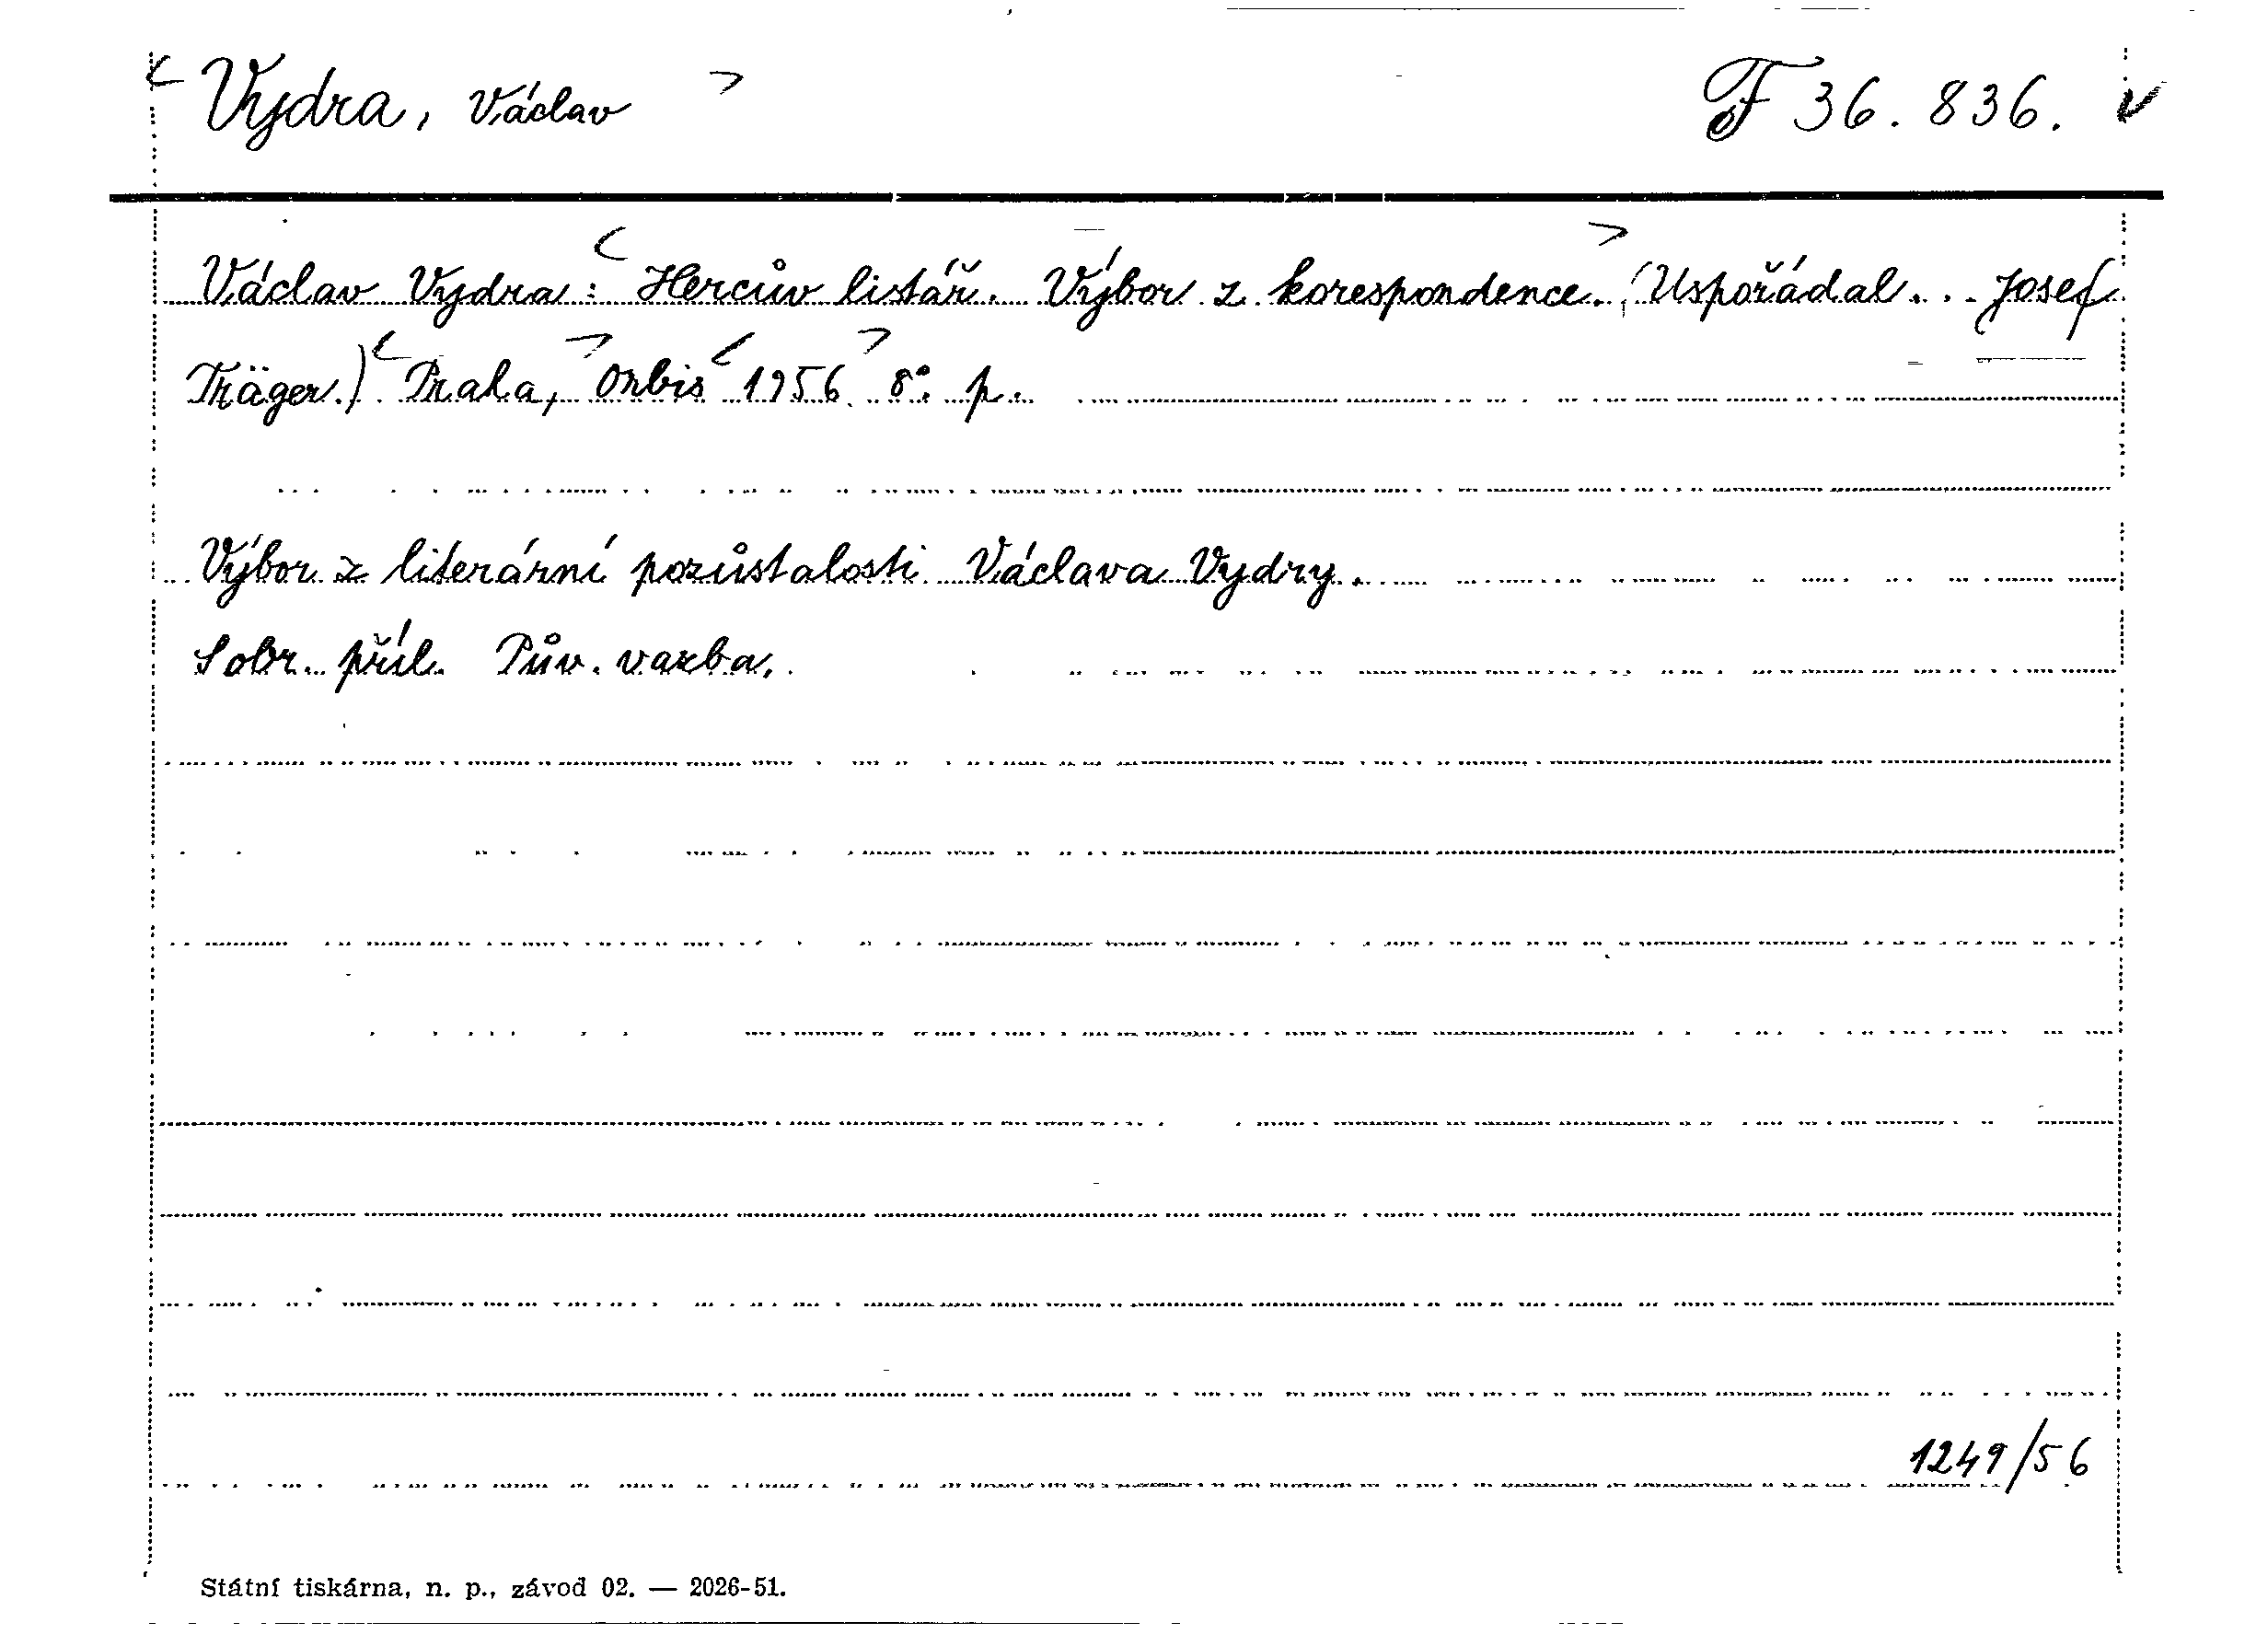 < Vydra, Václav > F 36.836. v
Václav Vydra: < Hercův listář. Výbor z korespondence. > (Uspořádal... Josef
Träger.) < Praha, > Orbis < 1956 > 8°. p.
Výbor z literární pozůstalosti Václava Vydry.
S obr. příl. Pův. vazba.
1249/56
Státní tiskárna, n. p., závod 02. — 2026-51.